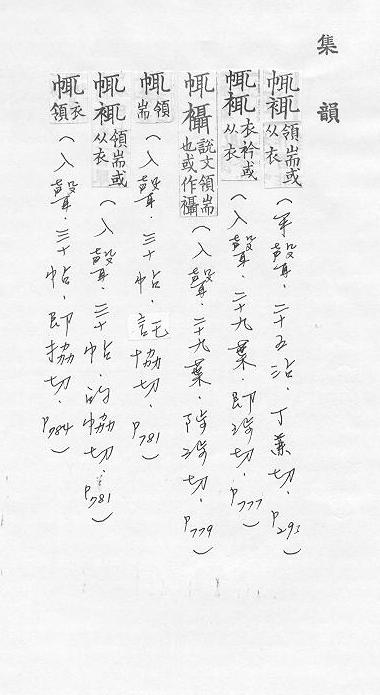 集韻
㡇䘚領耑或从衣(平聲.二十五沾.丁兼切.P293)
㡇䘚衣衿或从衣(入聲.二十九葉.即涉切.P777)
㡇襵說文領耑也或作襵(入聲.二十九葉.陟涉切.P779)
㡇領耑(入聲.三十帖.託協切.P781)
㡇䘚領耑或从衣(入聲.三十帖.的協切.P781)
㡇衣領(入聲.三十帖.即協切.P784)